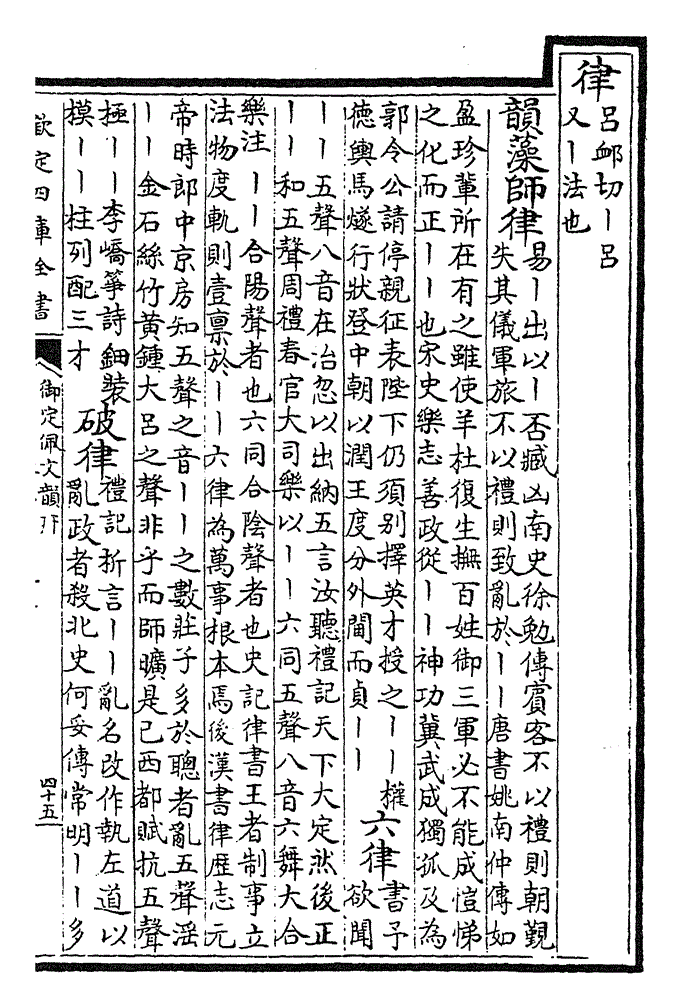 律
呂卹切丨呂
又丨法也
韻藻師律
易丨出以丨否臧凶南史徐勉傳賓客不以禮則朝覲
失其儀軍旅不以禮則致亂於丨丨唐書姚南仲傳如
盈珍輩所在有之雖使羊杜復生撫百姓御三軍必不能成愷悌
之化而正丨丨也宋史樂志善政從丨丨神功冀武成獨孤及為
郭令公請停親征表陛下仍須別擇英才授之丨丨權
德輿馬燧行狀登中朝以潤王度分外閫而貞丨丨
六律
書予
欲聞
丨丨五聲八音在治忽以出納五言汝聽禮記天下大定然後正
丨丨和五聲周禮春官大司樂以丨丨六同五聲八音六舞大合
樂注 丨丨合陽聲者也六同合陰聲者也史記律書王者制事立
法物度軌則壹禀於丨丨六律為萬事根本焉後漢書律歴志元
帝時郎中京房知五聲之音丨丨之數莊子多於聰者亂五聲淫
丨丨金石絲竹黃鍾大呂之聲非乎而師曠是已西都賦抗五聲
極丨丨李嶠箏詩鈿裝
模丨丨柱列配三才
破律
禮記析言丨丨亂名改作執左道以
亂政者殺北史何妥傳常明丨丨多
欽定四庫全書
御定佩文韻府
四十五